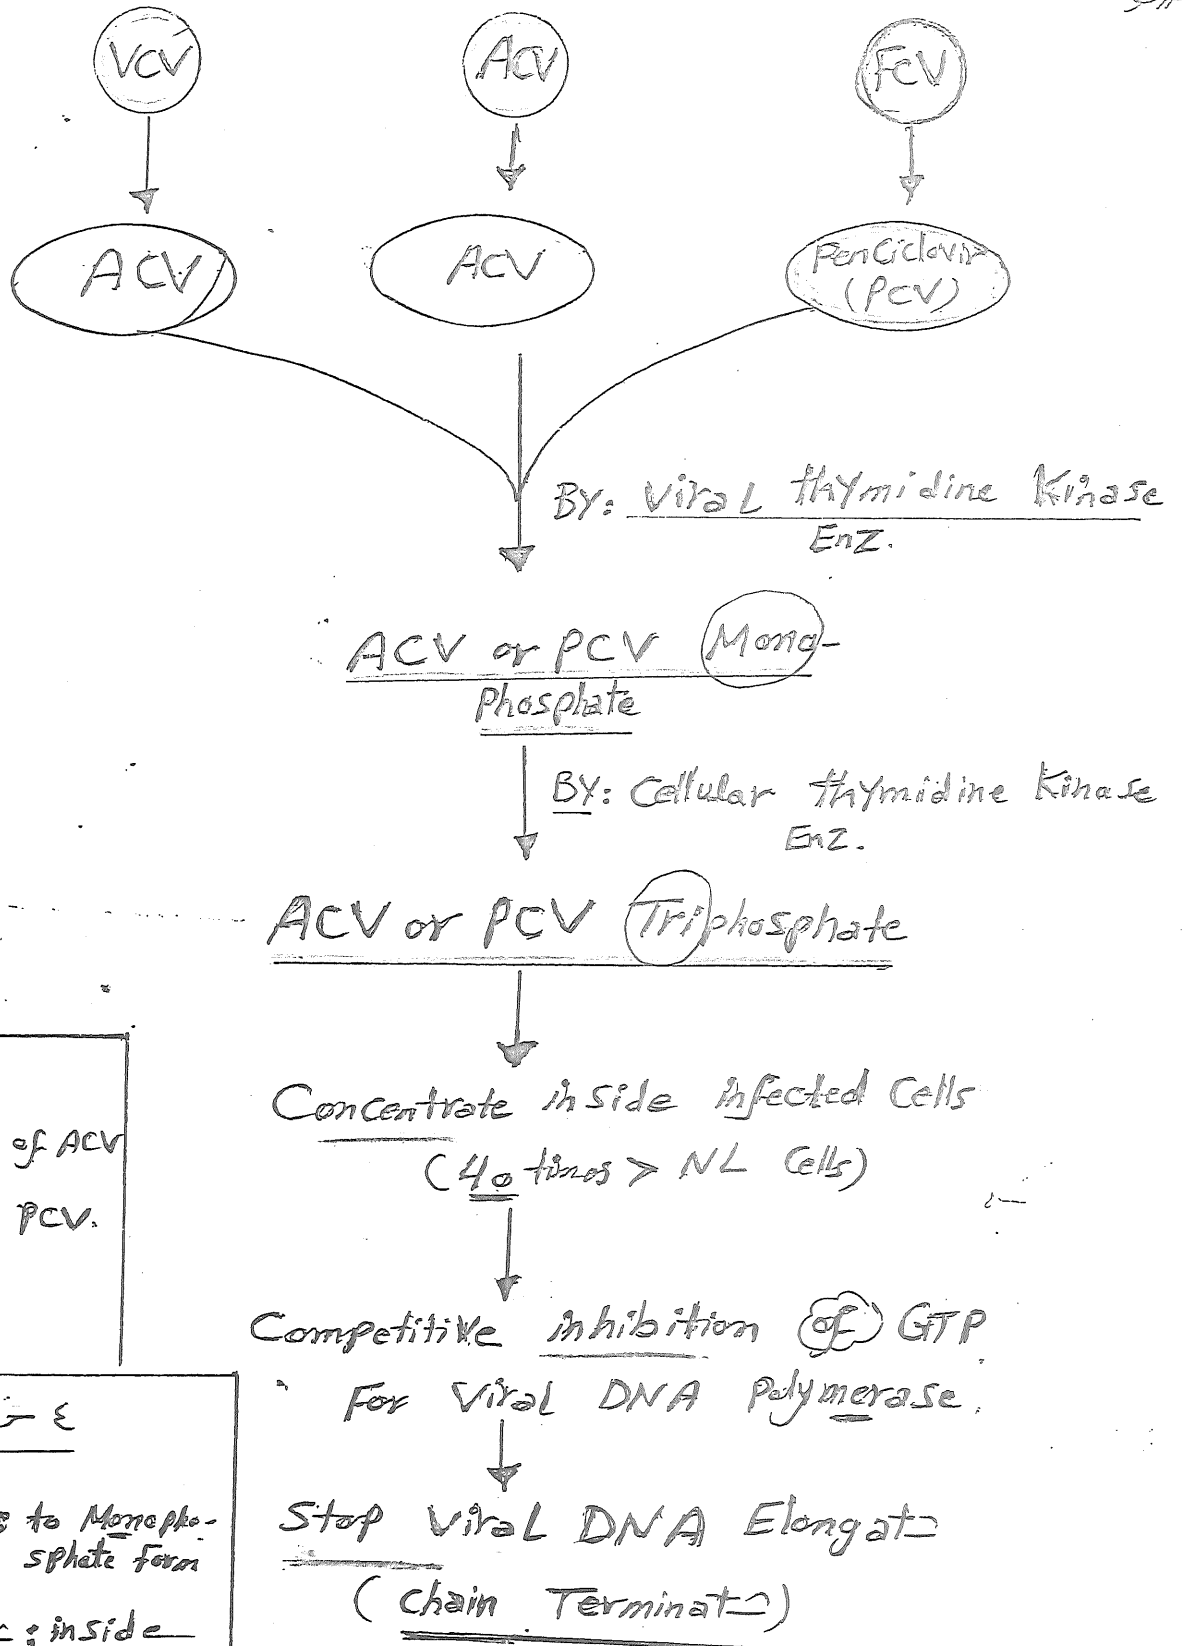 VCV
ACV
FCV
ACV
ACV
Penciclovir
(PCV)
BY: Viral thymidine Kinase
Enz.
ACV or PCV Mono-
Phosphate
BY: Cellular thymidine Kinase
Enz.
ACV or PCV Triphosphate
Concentrate inside infected Cells
(40 times > NL Cells)
of ACV
PCV.
Competitive inhibition of GTP
For Viral DNA Polymerase.
Stop Viral DNA Elongat
(Chain Terminat)
to Monopho-
sphate form
: inside